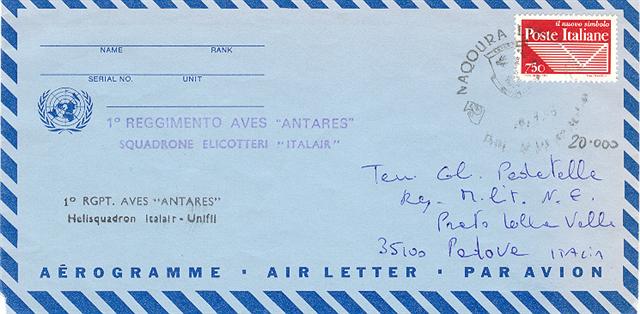 NAME RANK
SERIAL NO. UNIT
1° REGGIMENTO AVES "ANTARES"
SQUADRONE ELICOTTERI "ITALAIR"
1° RGPT. AVES "ANTARES"
Helisquadron Italair - Unifil
NAQOURA
il nuovo simbolo
Poste Italiane
750
20.000
Ten. Col. Pedetella
Reg. Milit. N.E.
Prato della Valle
35100 Padova ITALIA
AÉROGRAMME • AIR LETTER • PAR AVION